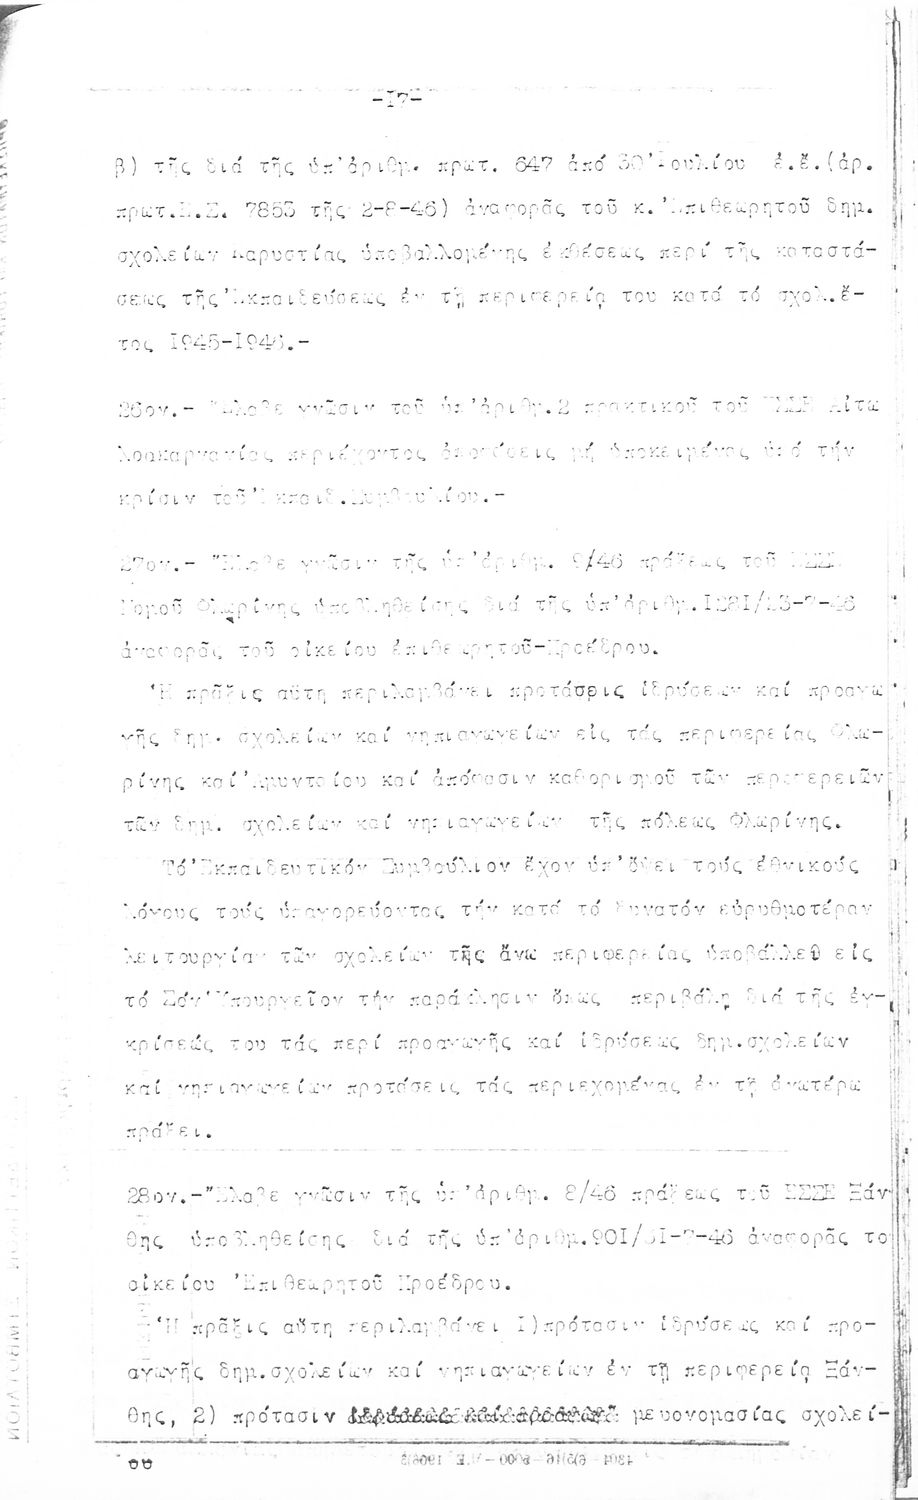 -I7-
β) τῆς διά τῆς ὑπ'ἀριθμ. πρωτ. 647 ἀπό 30 Ἰουλίου ἐ.ἔ.(ἀρ.
πρωτ.Ε.Σ. 7853 τῆς 2-8-46) ἀναφορᾶς τοῦ κ.Ἐπιθεωρητοῦ δημ.
σχολείων Καρυστίας ὑποβαλλομένης ἐκθέσεως περί τῆς καταστά-
σεως τῆς Ἐκπαιδεύσεως ἐν τῇ περιφερείᾳ του κατά τό σχολ.ἔ-
τος I945-I946.-
26ον.- Ἔλαβε γνῶσιν τοῦ ὑπ'ἀριθμ.2 πρακτικοῦ τοῦ ΕΣΣΕ Αἰτω
λοακαρνανίας περιέχοντος ἀποφάσεις μή ὑποκειμένας ὑπό τήν
κρίσιν τοῦ Ἐκπαιδ.Συμβουλίου.-
27ον.- Ἔλαβε γνῶσιν τῆς ὑπ'ἀριθμ. 9/46 πράξεως τοῦ ΕΣΣΕ
Νομοῦ Φλωρίνης ὑποβληθείσης διά τῆς ὑπ'ἀριθμ.
ἀναφορᾶς τοῦ οἰκείου ἐπιθεωρητοῦ-Προέδρου.
Ἡ πρᾶξις αὕτη περιλαμβάνει προτάσεις ἱδρύσεων καί προαγω
γῆς δημ. σχολείων καί νηπιαγωγείων εἰς τάς περιφερείας Φλω-
ρίνης καί Ἀμυνταίου καί ἀπόφασιν καθορισμοῦ τῶν περιφερειῶν
τῶν δημ. σχολείων καί νηπιαγωγείων τῆς πόλεως Φλωρίνης.
Τό Ἐκπαιδευτικόν Συμβούλιον ἔχον ὑπ'ὄψει τούς ἐθνικούς
λόγους τούς ὑπαγορεύοντας τήν κατά τό δυνατόν εὐρυθμοτέραν
λειτουργίαν τῶν σχολείων τῆς ἄνω περιφερείας ὑποβάλλει εἰς
τό Σόν Ὑπουργεῖον τήν παράκλησιν ὅπως περιβάλῃ διά τῆς ἐγ-
κρίσεώς του τάς περί προαγωγῆς καί ἱδρύσεως δημ.σχολείων
καί νηπιαγωγείων προτάσεις τάς περιεχομένας ἐν τῇ ἀνωτέρω
πράξει.
28ον.-Ἔλαβε γνῶσιν τῆς ὑπ'ἀριθμ. 8/46 πράξεως τοῦ ΕΣΣΕ Ξάν
θης ὑποβληθείσης διά τῆς ὑπ'ἀριθμ.90I/3I-7-46 ἀναφορᾶς το
οἰκείου Ἐπιθεωρητοῦ Προέδρου.
Ἡ πρᾶξις αὕτη περιλαμβάνει I)πρότασιν ἱδρύσεως καί προ-
αγωγῆς δημ.σχολείων καί νηπιαγωγείων ἐν τῇ περιφερείᾳ Ξάν-
θης, 2) πρότασιν μετονομασίας σχολεί-